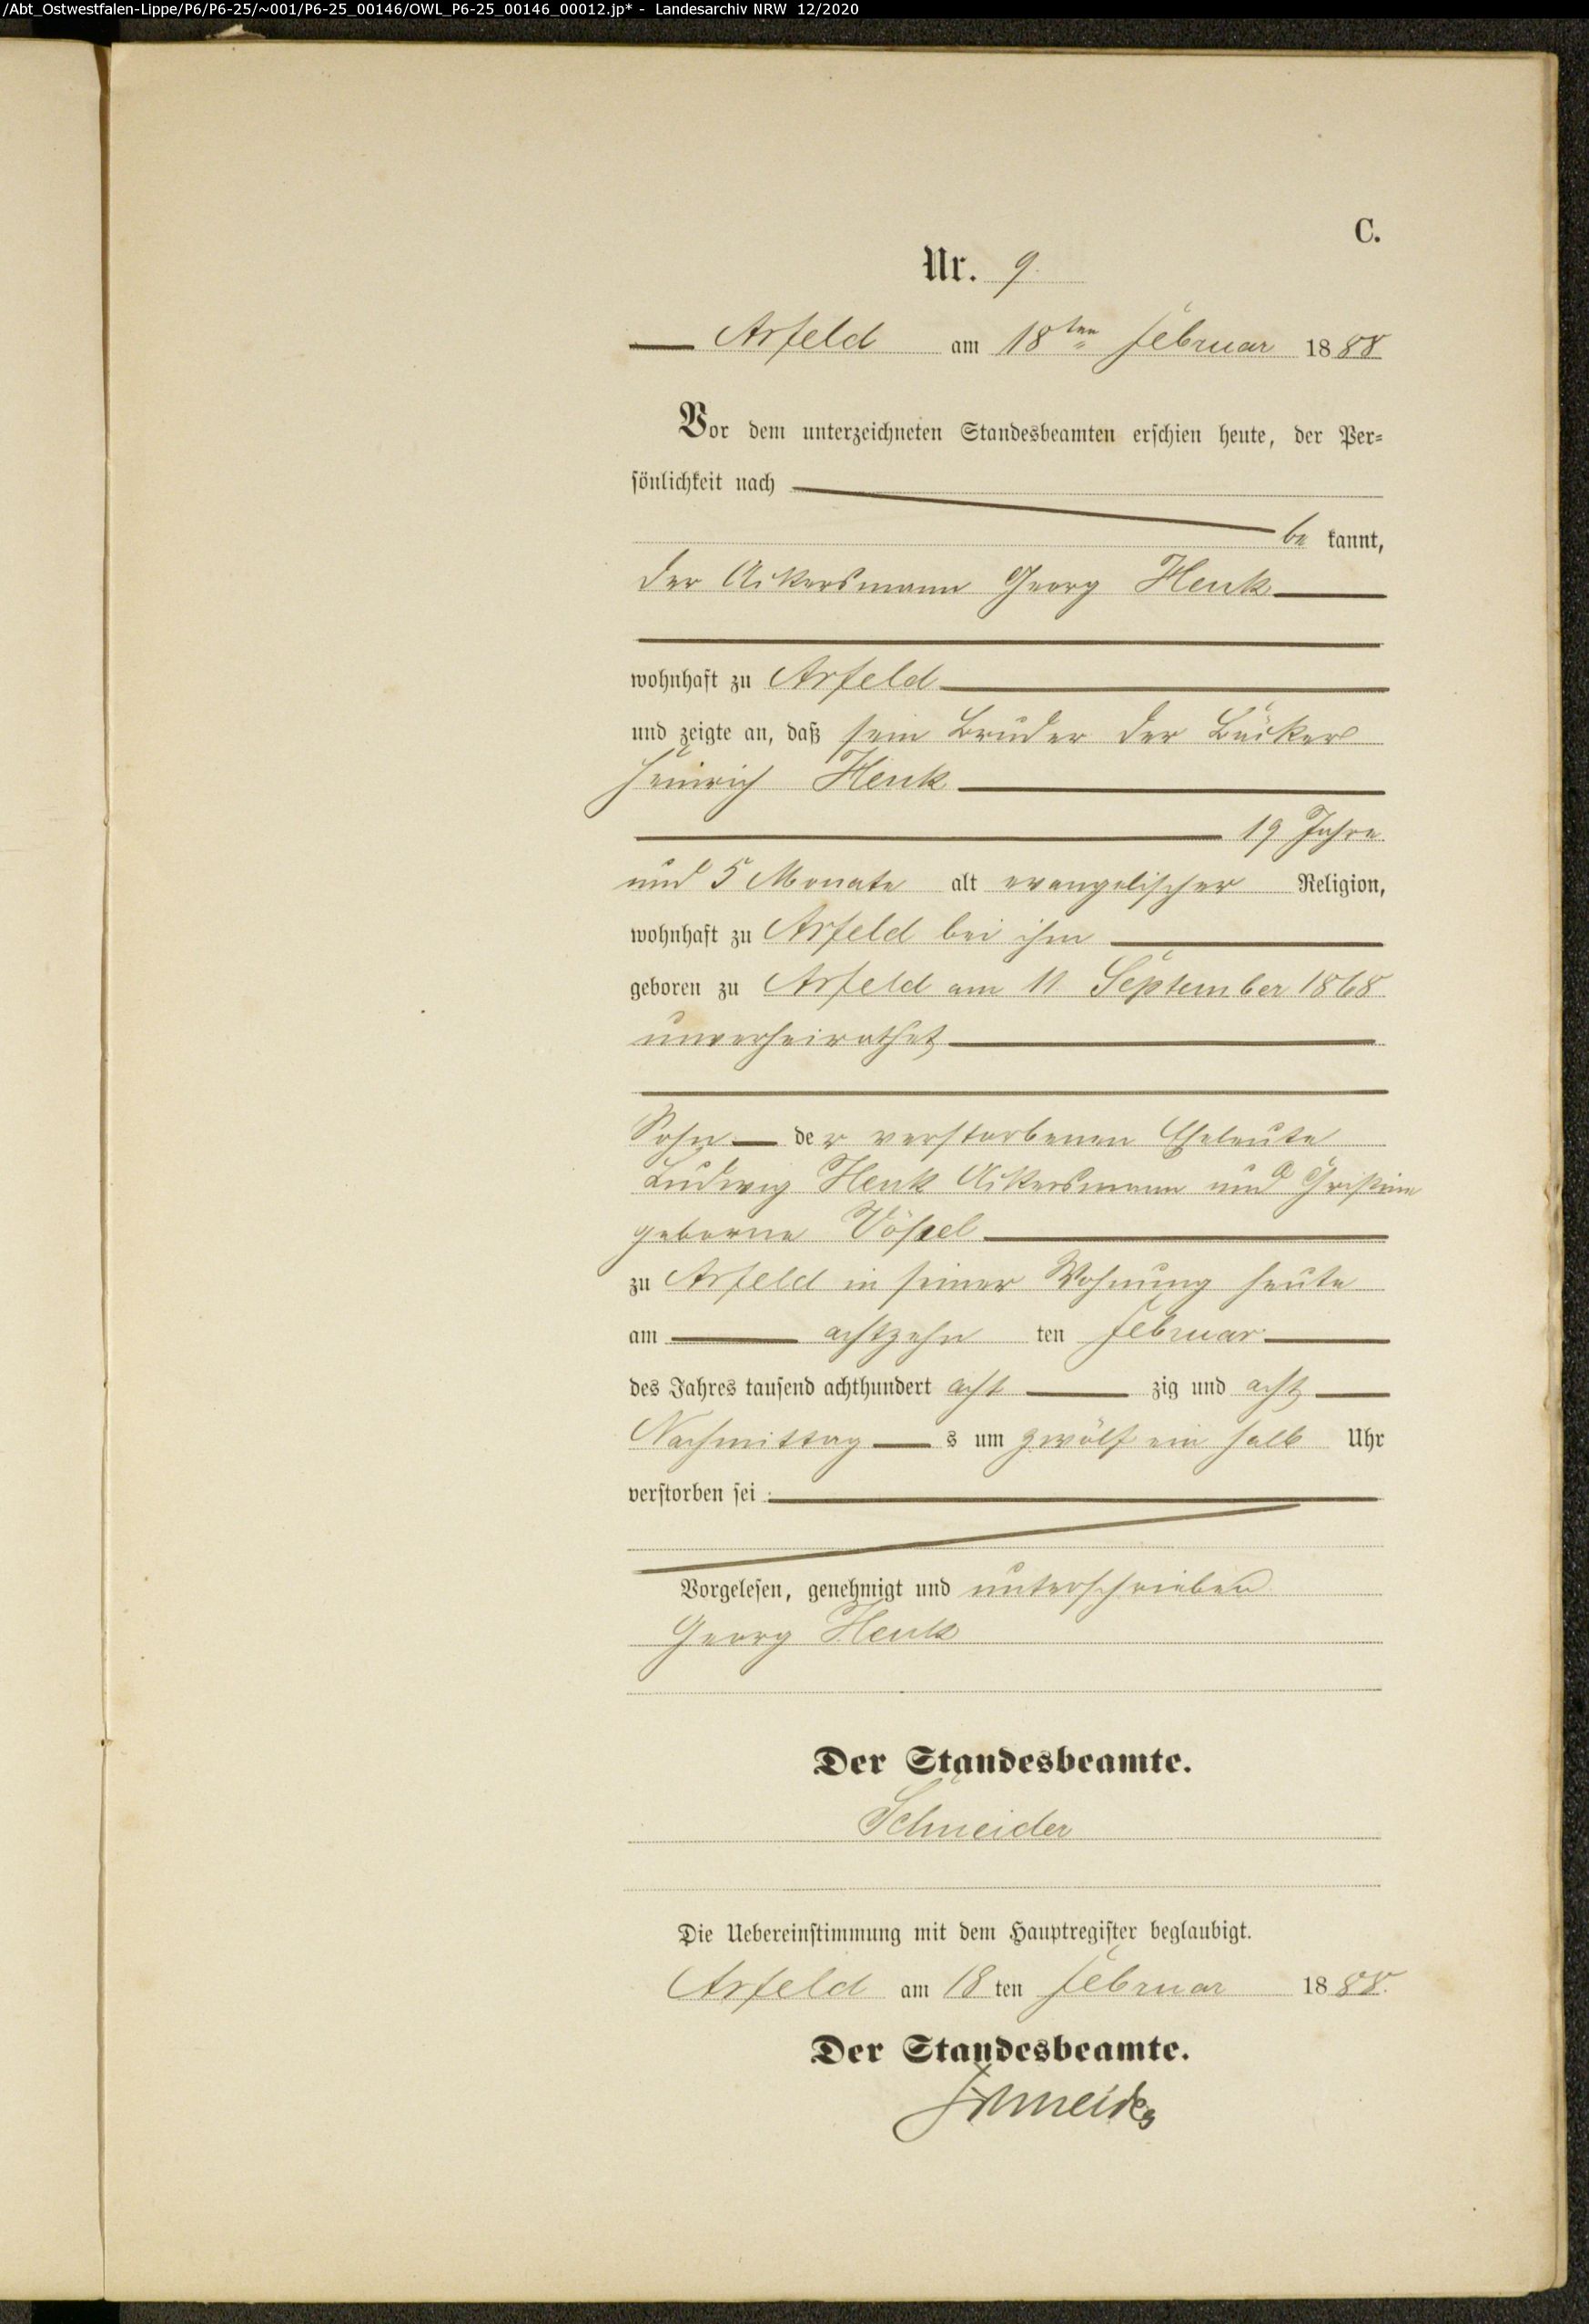 /Abt_Ostwestfalen-Lippe/P6/P6-25/~001/P6-25_00146/OWL_P6-25_00146_00012.jp* - Landesarchiv NRW 12/2020
C.
Nr. 9.
Arfeld am 18ten Februar 1888
Vor dem unterzeichneten Standesbeamten erschien heute, der Per-
sönlichkeit nach
be kannt,
der Ackersmann Georg Henk
wohnhaft zu Arfeld
und zeigte an, daß sein Bruder der Bäcker
Heinrich Henk
19 Jahre
und 5 Monate alt evangelischer Religion,
wohnhaft zu Arfeld bei ihm
geboren zu Arfeld am 11 September 1868
unverheirathet
Sohn der verstorbenen Eheleute
Ludwig Henk Ackersmann und
geborne
zu Arfeld in seiner Wohnung heute
am achtzehn ten Februar
des Jahres tausend achthundert acht zig und acht
Nachmittag s um zwölf ein halb Uhr
verstorben sei
Vorgelesen, genehmigt und unterschrieben
Georg Henk
Der Standesbeamte.
Schneider
Die Uebereinstimmung mit dem Hauptregister beglaubigt.
Arfeld am 18 ten Februar 1888.
Der Standesbeamte.
Schneider